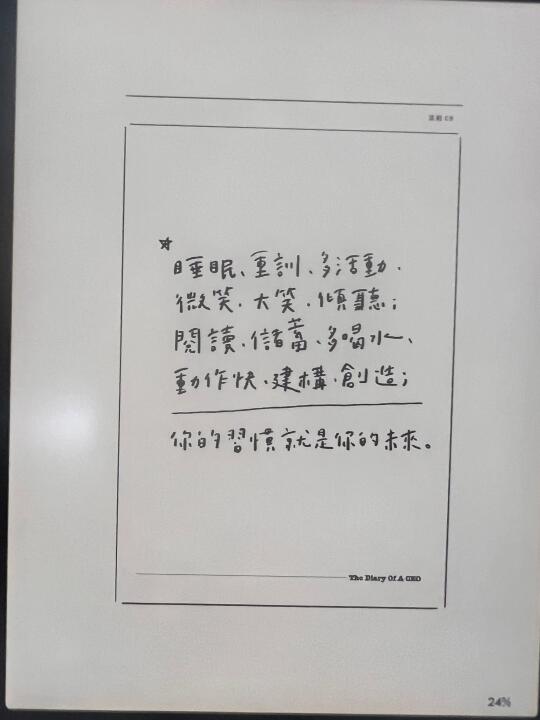 法則 09
睡眠、重訓、多活動、
微笑、大笑、傾聽；
閱讀、儲蓄、多喝水、
動作快、建構、創造；
你的習慣就是你的未來。
The Diary Of A CEO
24%